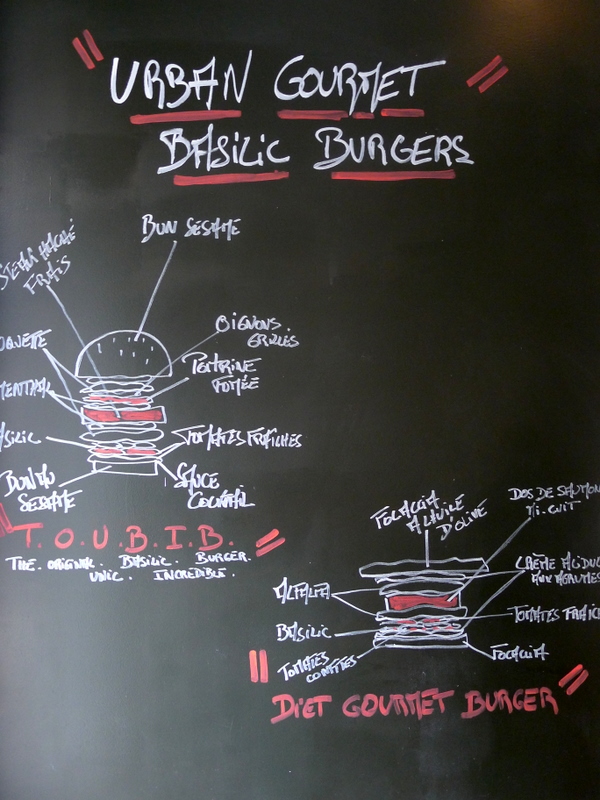 URBAN GOURMET
BASILIC BURGERS
BUN SESAME
STEAK HACHÉ
FRAIS
OIGNONS
GRILLÉS
OQUETTE
POITRINE
FUMÉE
MENTAL
SILIC
TOMATES FRAICHES
BUN AU
SESAME
SAUCE
COCKTAIL
T.O.U.B.I.B.
THE. ORIGINAL. BASILIC. BURGER.
UNIC. INCREDIBLE.
FOCACCIA
A L'HUILE
D'OLIVE
DOS DE SAUMON
MI.CUIT
CRÈME ACIDU
AUX AGRUMES
ALFALFA
TOMATES FRAIC
BASILIC
TOMATES
CONFITES
FOCACCIA
DIET GOURMET BURGER